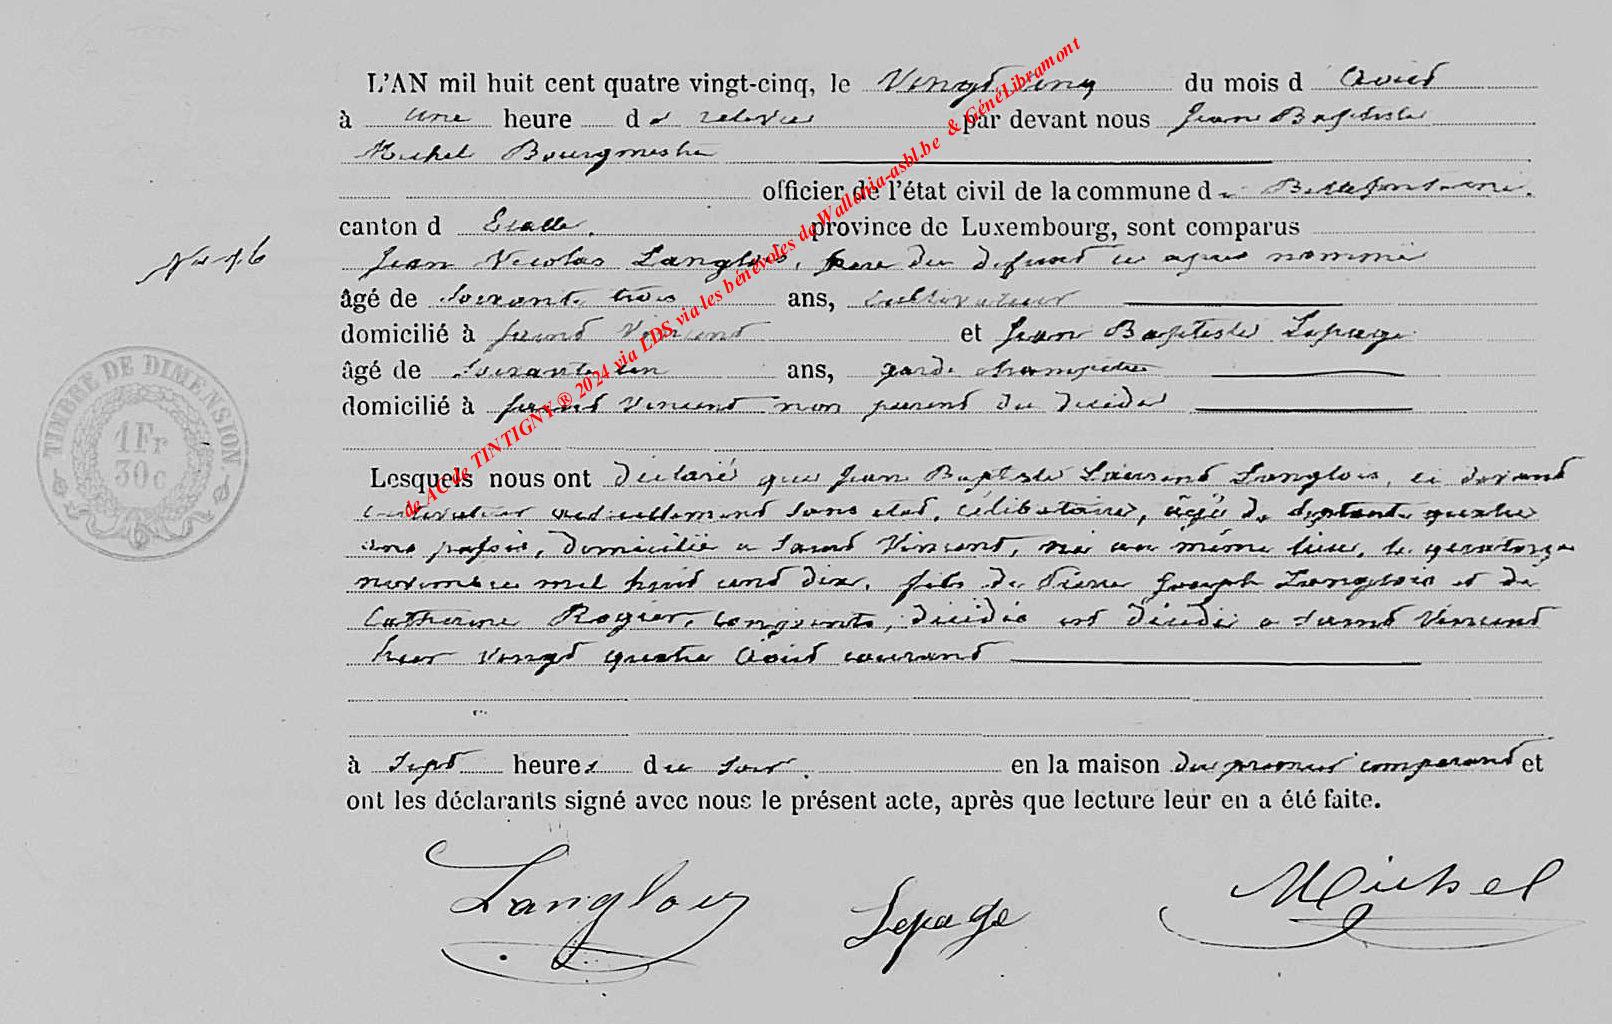 L'AN mil huit cent quatre vingt-cinq, le Vingt cinq du mois d Août
à une heure de relevée par devant nous Jean Baptiste
Michel Bourgmestre
officier de l'état civil de la commune de Bellefontaine.
canton d Etalle. province de Luxembourg, sont comparus
No 16
Jean Nicolas Langlois, frère du défunt ci après nommé
âgé de soixante trois ans, cultivateur
domicilié à Saint Vincent et Jean Baptiste Lepage
âgé de soixante un ans, garde champêtre
domicilié à Saint Vincent non parent du décédé
Lesquels nous ont déclaré que Jean Baptiste Laurent Langlois, ci devant
cultivateur actuellement sans état, célibataire, âgé de septante quatre
ans passés, domicilié à Saint Vincent, né au même lieu, le quatorze
novembre mil huit cent dix, fils de Pierre Joseph Langlois et de
Catherine Rogier, conjoints, décédés est décédé à Saint Vincent
hier vingt quatre Août courant
à sept heures du soir. en la maison du premier comparant et
ont les déclarants signé avec nous le présent acte, après que lecture leur en a été faite.
Langlois Lepage Michel
TIMBRE DE DIMENSION
1 Fr
30c
de AC de TINTIGNY ® 2024 via LDS via les bénévoles de Wallonia-asbl.be & GénéLibramont